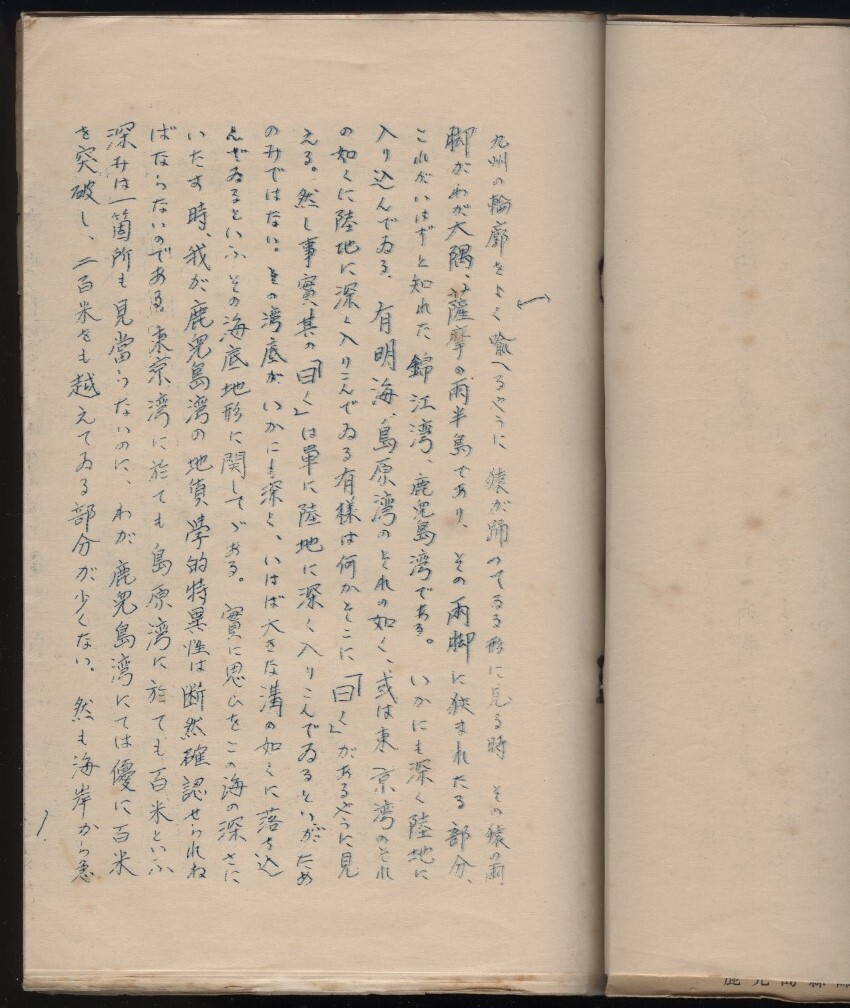 九州の輪廓をよく喩へるやうに猿が踊つてゐる形に見る時 その猿の両
脚がわが大隅、薩摩の両半島であり、その両脚に狭まれたる部分、
これがいはずと知れた錦江湾、鹿児島湾である。 いかにも深く陸地に
入り込んでゐる。有明海、島原湾のそれの如く、或は東京湾のそれ
の如くに陸地に深く入りこんでゐる有様は何かそこに「曰く」があるやうに見
える。然し事實其の「曰く」は單に陸地に深く入りこんでゐるといふがため
のみではない。その湾底がいかにも深く、いはば大きな溝の如くに落ち込
んでゐるといふその海底地形に関してゞある。 實に思ひをこの海の深さに
いたす時、我が鹿児島湾の地質學的特異性は断然確認せられね
ばならないのである。東京湾に於ても島原湾に於ても百米といふ
深みは一箇所も見當らないのに、わが鹿児島湾にては優に百米
を突破し、二百米をも越えてゐる部分が少くない。 然も海岸から急
1